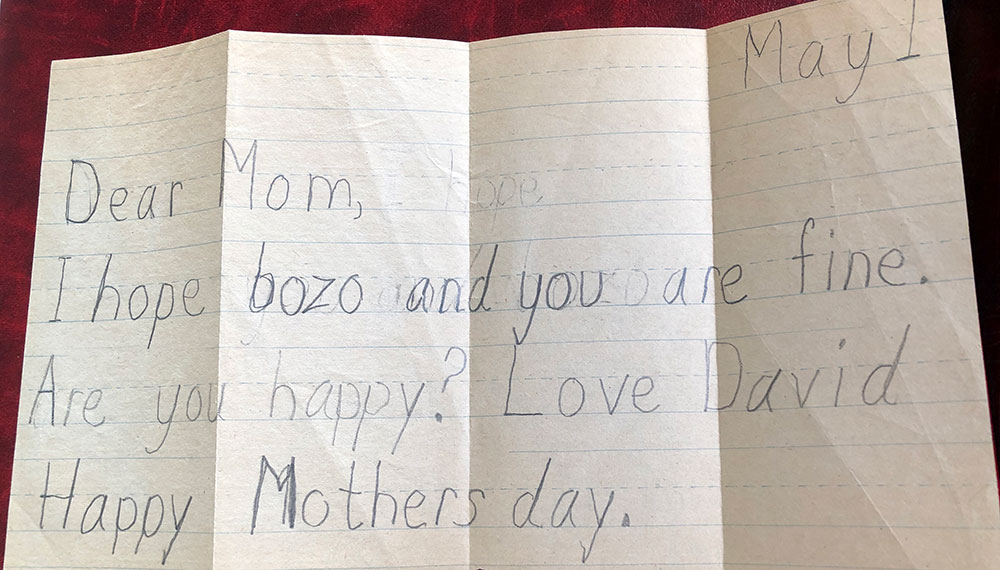 May 1
Dear Mom,
I hope bozo and you are fine.
Are you happy? Love David
Happy Mothers day.